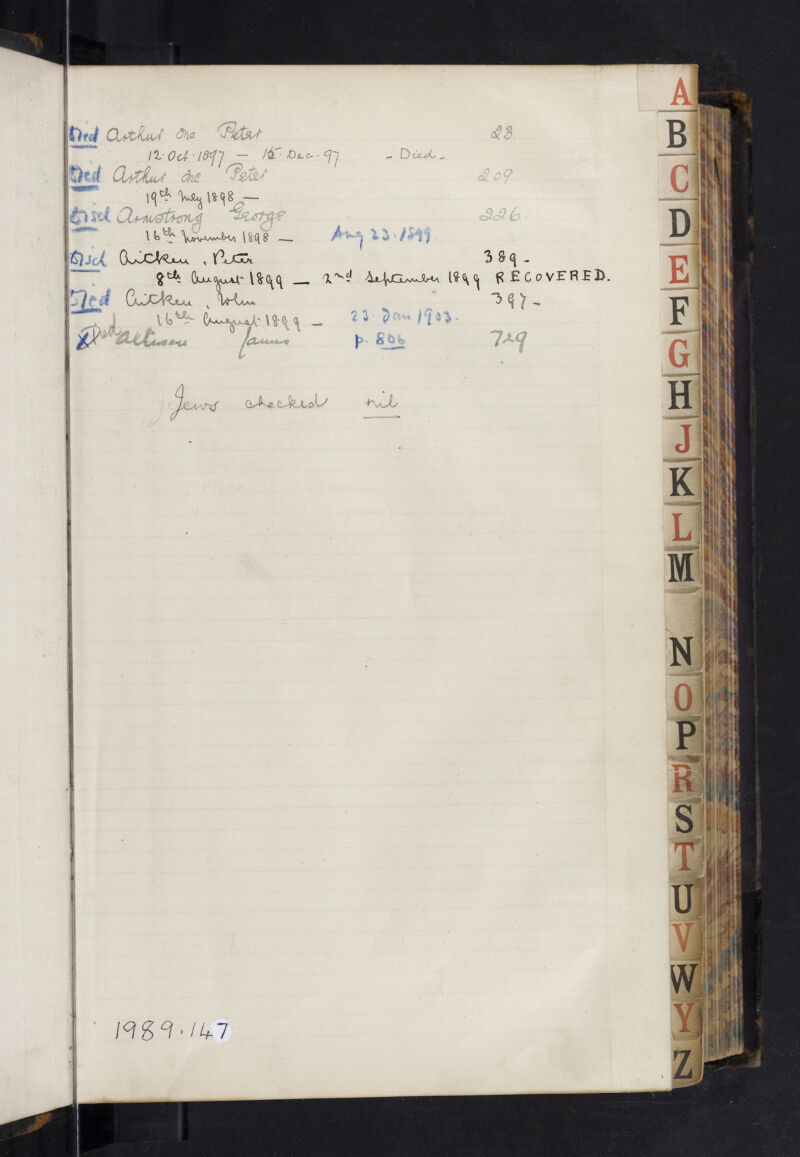 Died Arthur Mc Peter 23.
12. Oct. 1897 — 15. Dec. 97 - Died -
Died Arthur Mc Peter 209.
19th July 1898 —
Disd Armstrong George 226
16th November 1898 — Aug 23. 1899
Disd Aitken, Peter 389 -
8th August 1899 — 2nd September 1899 RECOVERED.
Died Aitken, John 397 -
16th August 1899 — 23. Jan 1903.
X Died James p. 806 729
Jews checked nil
1989.147
A
B
C
D
E
F
G
H
J
K
L
M
N
O
P
R
S
T
U
V
W
Y
Z